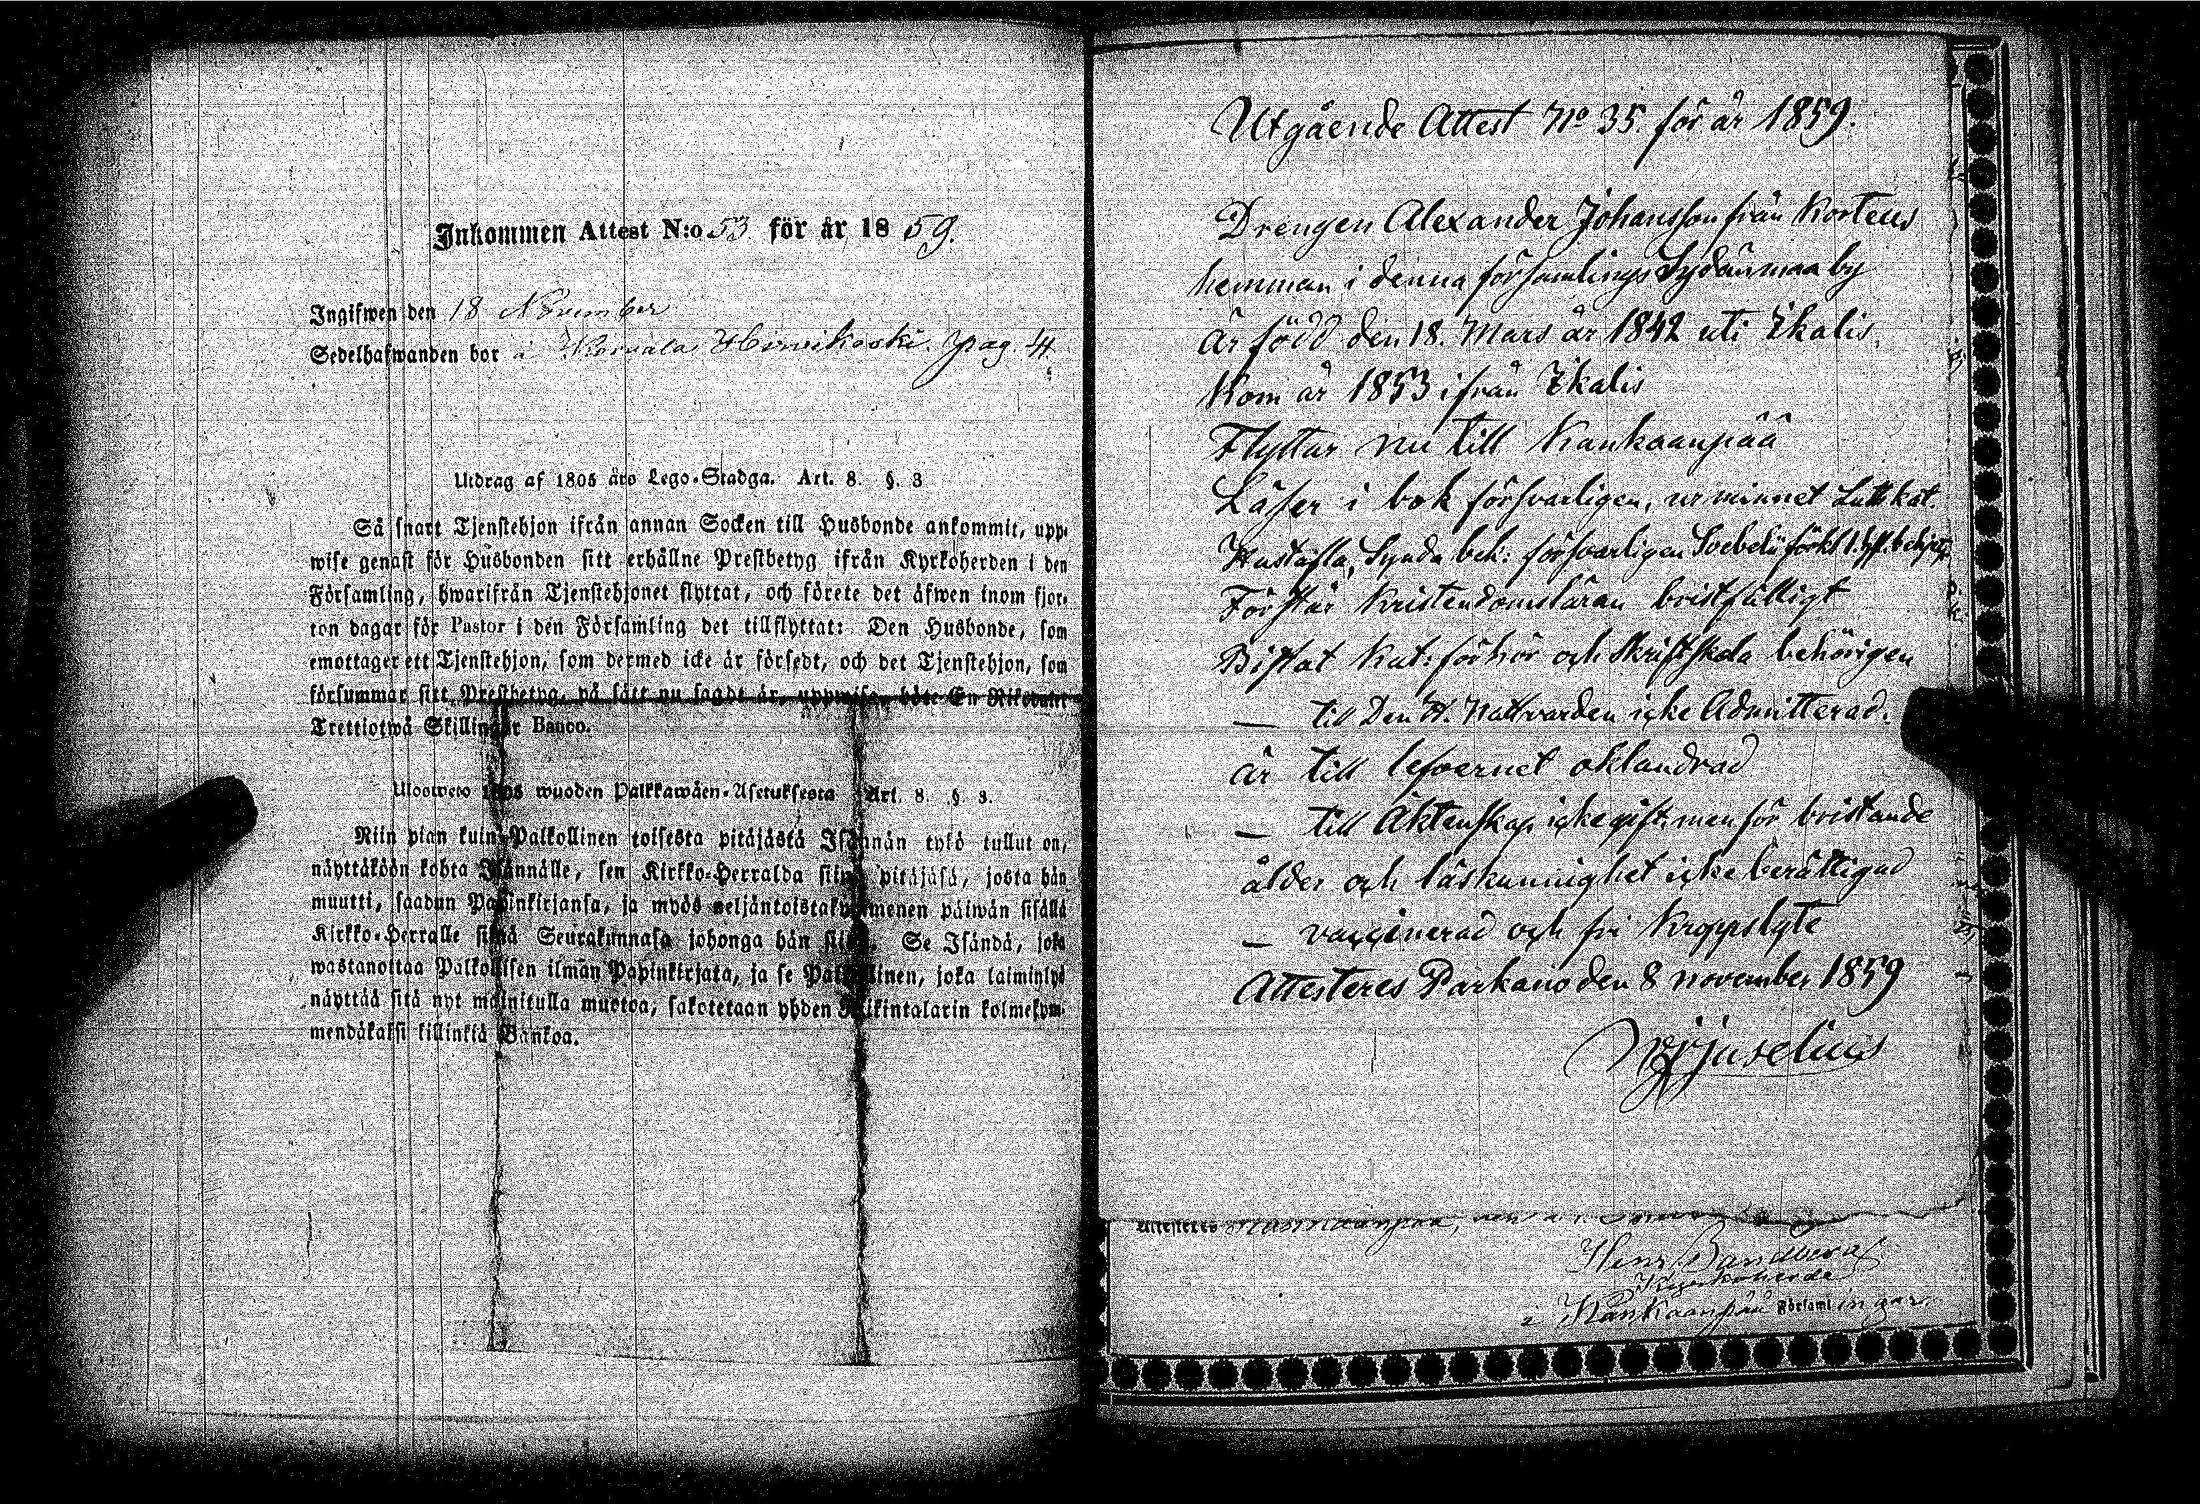 Inkommen Attest N:o 53 för år 1859.
Ingifwen den 18 November
Sedelhafwanden bor å Korvala Hirvikoski. pag. 4
Utdrag af 1805 års Lego-Stadga. Art. 8. §. 3
Så snart Tjenstehjon ifrån annan Socken till Husbonde ankommit, upp-
wise genast för Husbonden sitt erhållne Prestbetyg ifrån Kyrkoherden i den
Församling, hwarifrån Tjenstehjonet flyttat, och förete det äfwen inom fjor-
ton dagar för Pastor i den Församling det tillflyttat: Den Husbonde, som
emottager ett Tjenstehjon, som dermed icke är försedt, och det Tjenstehjon, som
försummar sitt Prestbetyg, på sätt nu sagdt är, uppwisa, böte En Riksdaler
Trettiotwå Skillingar Banco.
Ulosweto 1805 wuoden Palkkawäen-Asetuksesta Art. 8. §. 3.
Niin pian kuin Palkollinen toisesta pitäjästä Isännän tykö tullut on,
näyttäköön kohta Isännälle, sen Kirkko-Herralda siinä pitäjäsä, josta hän
muutti, saadun Papinkirjansa, ja myös neljäntoistakymmenen päiwän sisällä
Kirkko-Herralle siinä Seurakunnasa johonga hän siirsi. Se Isändä, joka
wastanottaa Palkollisen ilman Papinkirjata, ja se Palkollinen, joka laiminlyö
näyttää sitä nyt mainitulla muotoa, sakotetaan yhden Riikintalarin kolmekym-
mendäkaksi killinkiä Bankoa.
Utgående Attest No 35. för år 1859.
Drengen Alexander Johansson från Korteus
hemman i denna församlings Sydänmaa by
är född den 18. Mars år 1842 uti Ikalis.
Kom år 1853 ifrån Ikalis
Flyttar nu till Kankaanpää
Läser i bok försvarligen, ur minnet Luth kat.
Hustafla, Synda bek: försvarligen Svebelii förkl
Förstår Kristendomsläran bristfälligt
Bistat Kat: förhör och Skriftskola behörigen
— till Den H. Nattvarden icke Admitterad.
är till lefvernet oklandrad
— till Äktenskap icke gift, men för bristande
ålder och läskunnighet icke berättigad
— vaccinerad och fri Kroppslyte
Attesteres Parkano den 8 november 1859
Juselius
Attesteres Kankaanpää, den
Henr. Sandberg
Kyrkoherde
i Kankaanpää Församlingar.